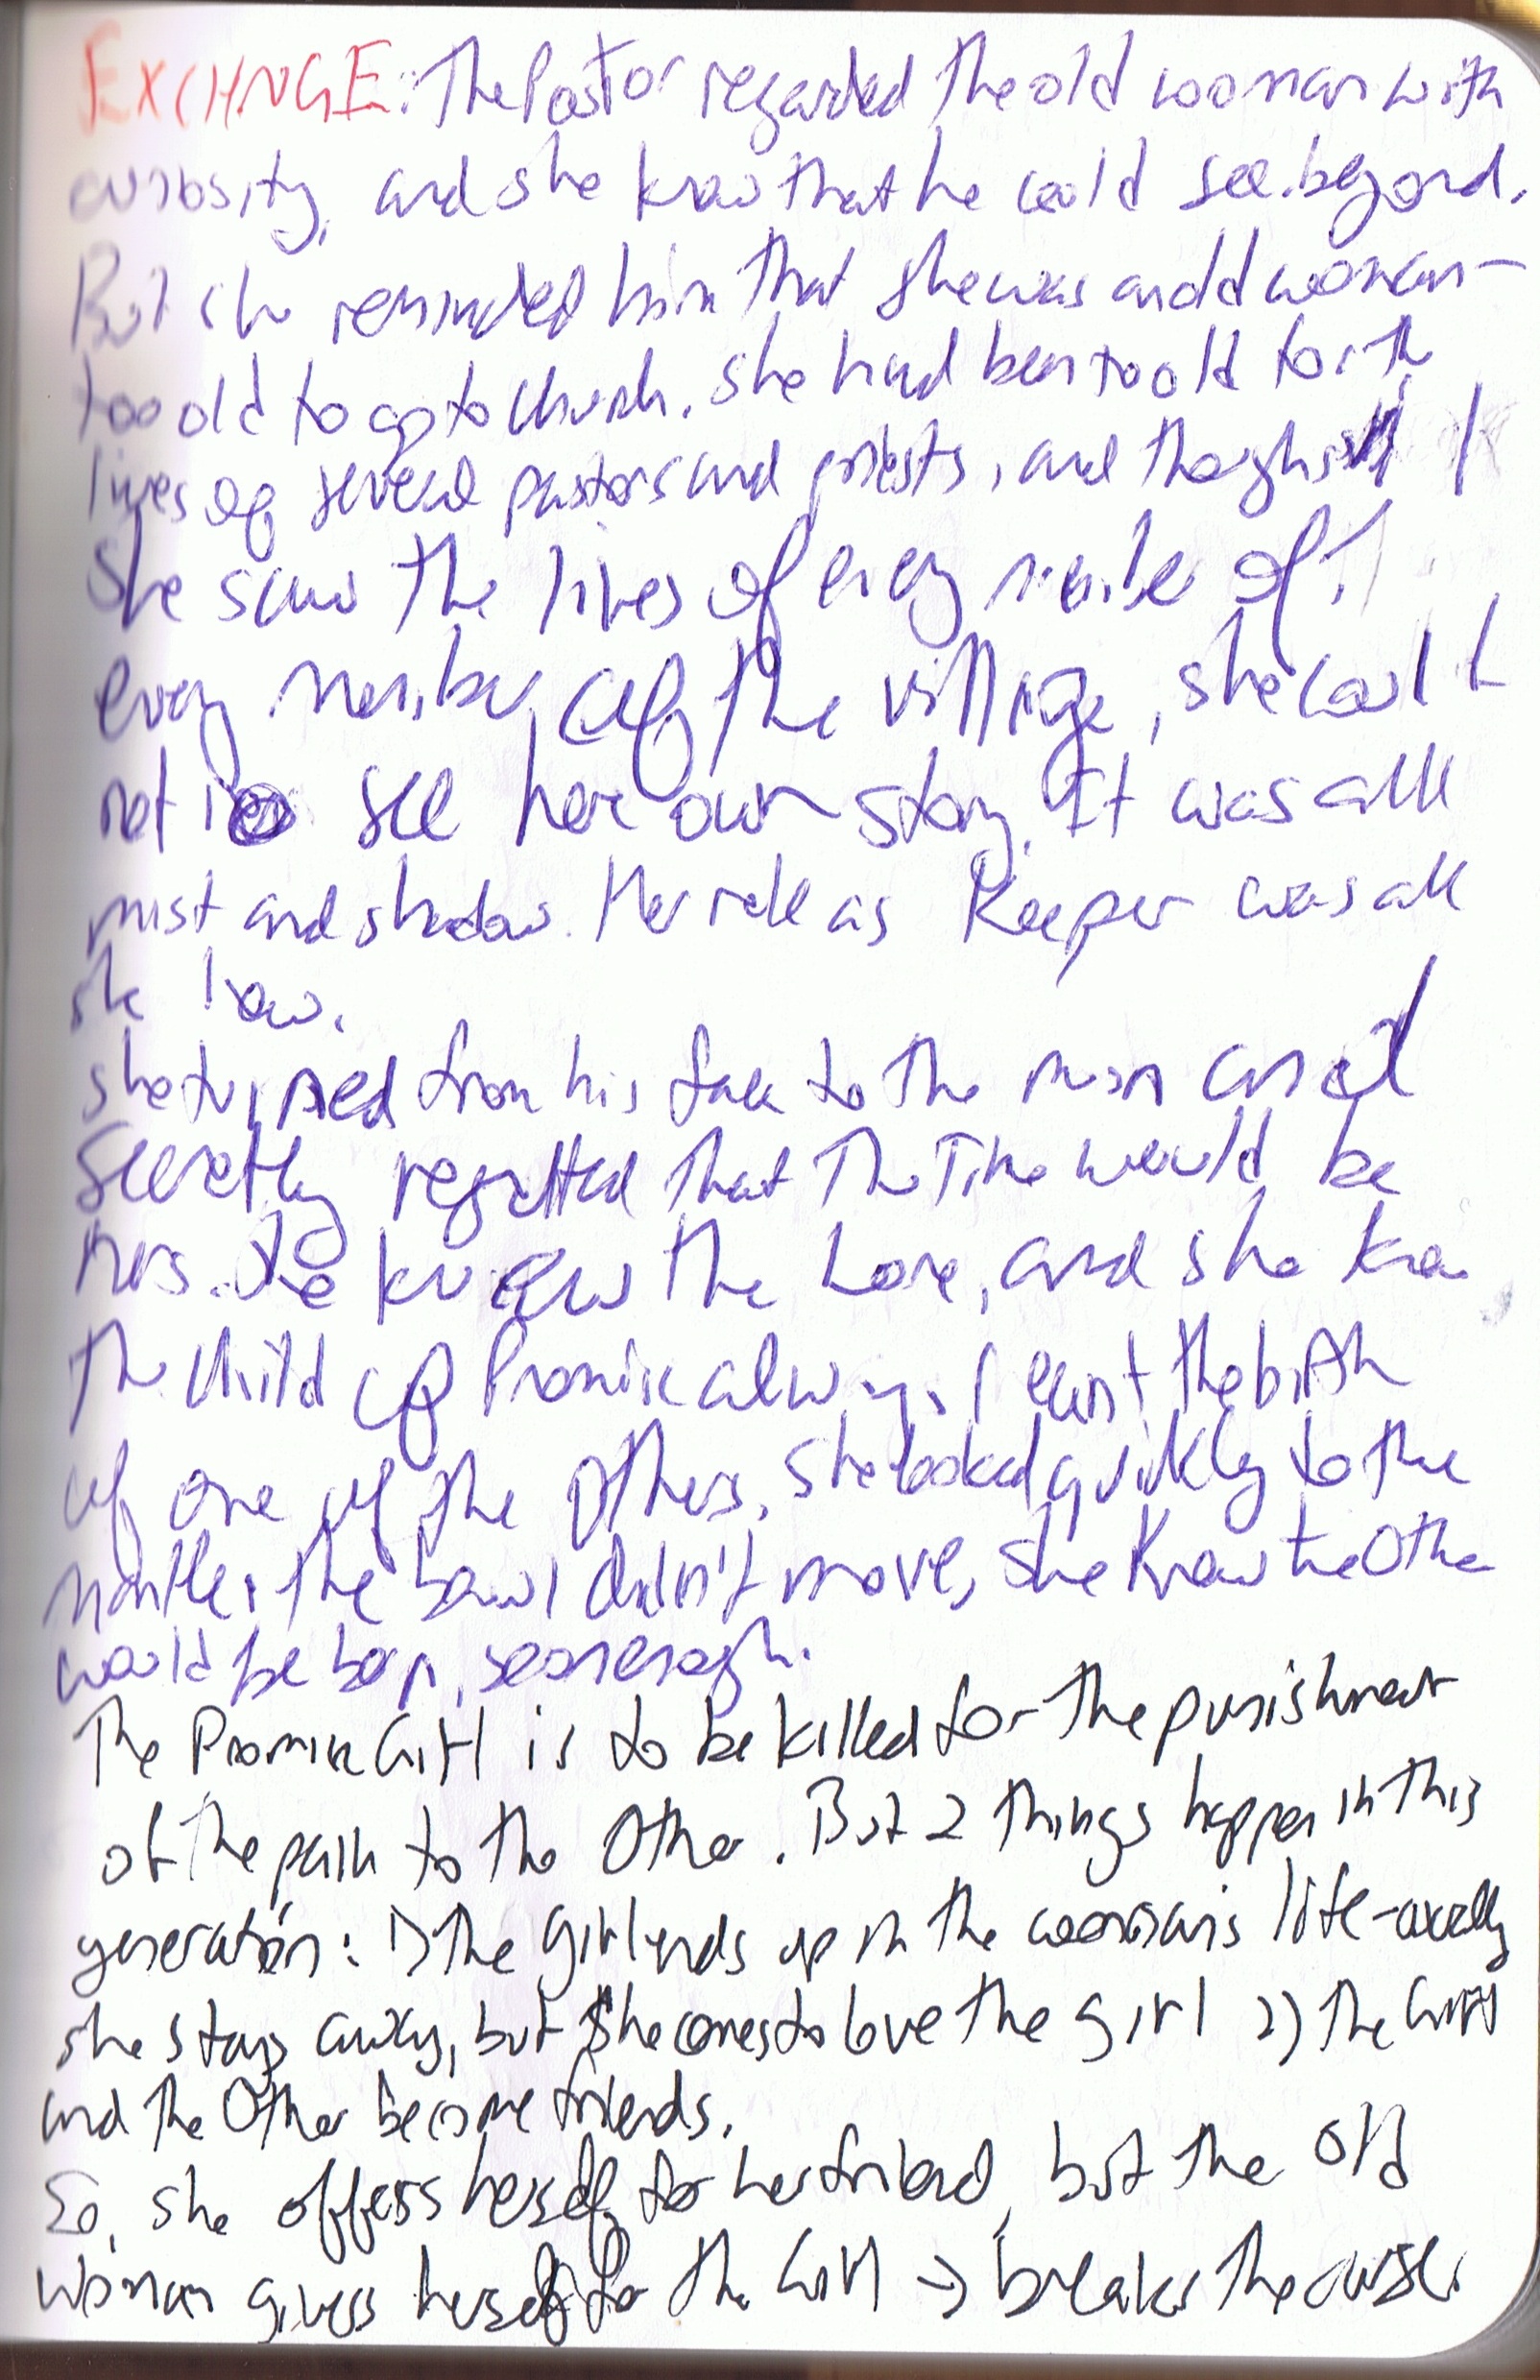 EXCHNGE: The Pastor regarded the old woman with
curiosity, and she knew that he could see beyond.
But she reminded him that she was an old woman—
too old to go to church. She had been too old for the
lives of several pastors and priests, and though
she saw the lives of every member of
every member of the village, she could
not see her own story. It was all
mist and shadow. Her role as Keeper was all
she knew.
She turned from his face to the moon and
secretly regretted that The Time would be
hers. She knew the Lore, and she knew
the Child of Promise always meant the birth
of one of the Others. She looked quickly to the
mantle, the bowl didn't move, she knew the Other
would be born, soon enough.
The Promise Girl is to be killed for the punishment
of the path to the Other. But 2 things happen in this
generation: 1) The girl ends up in the woman's life - usually
she stays away, but she comes to love the girl 2) The Girl
and the Other become friends.
So, she offers herself for her friend, but the old
woman gives herself for the Girl → breaks the curse.